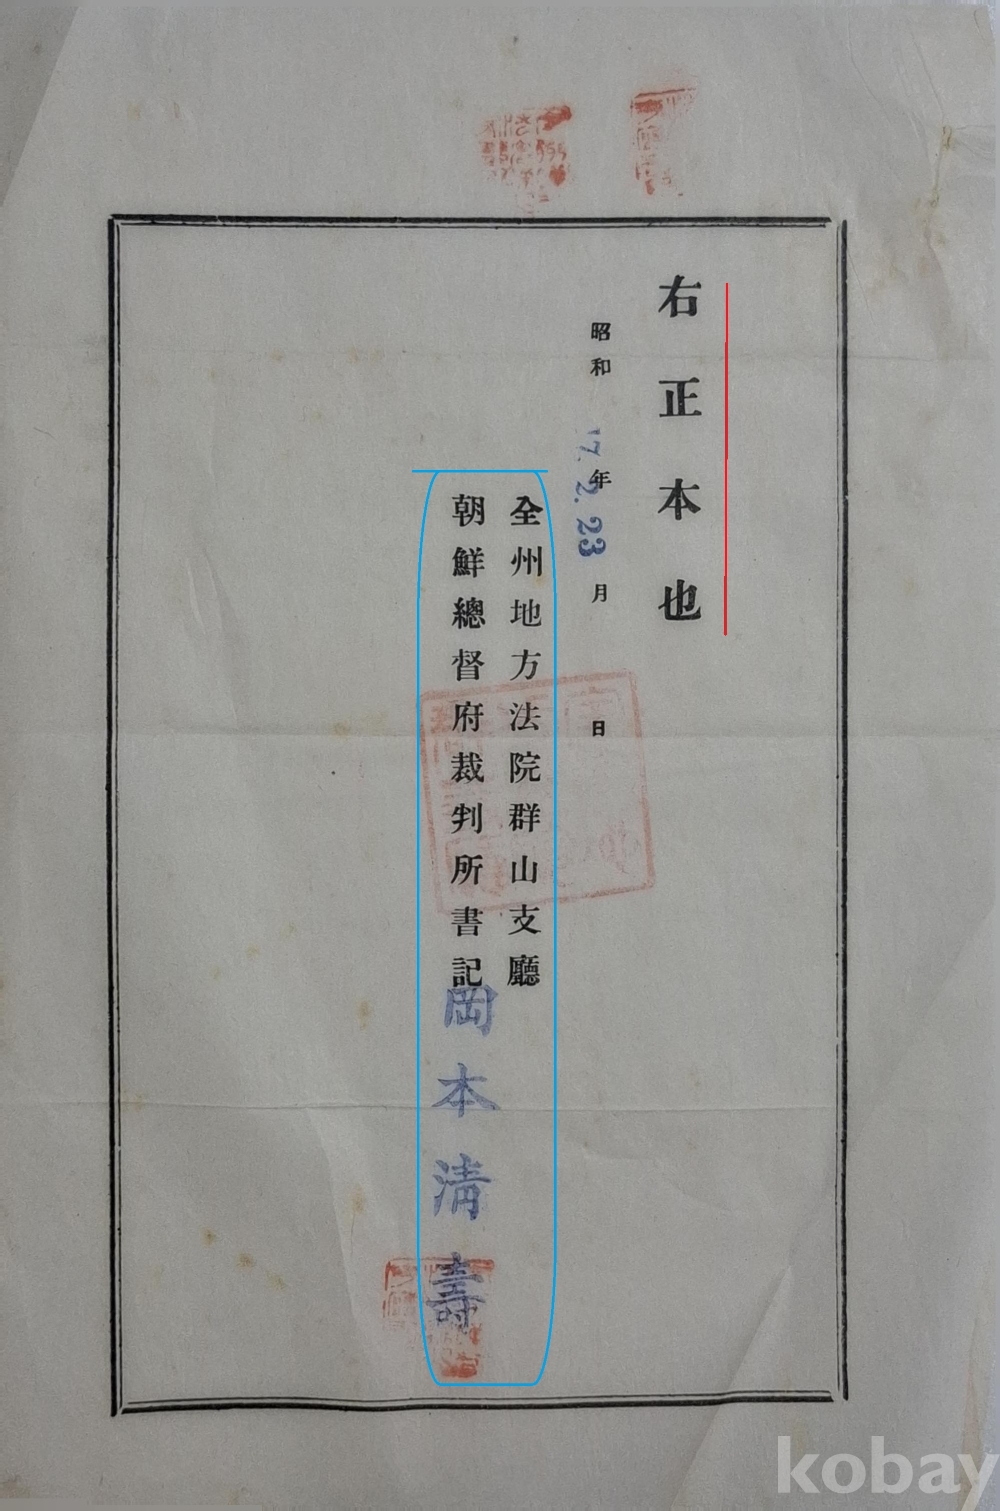 右正本也
昭和17年2月23日
全州地方法院群山支廳
朝鮮總督府裁判所書記 岡本清壽
kobay